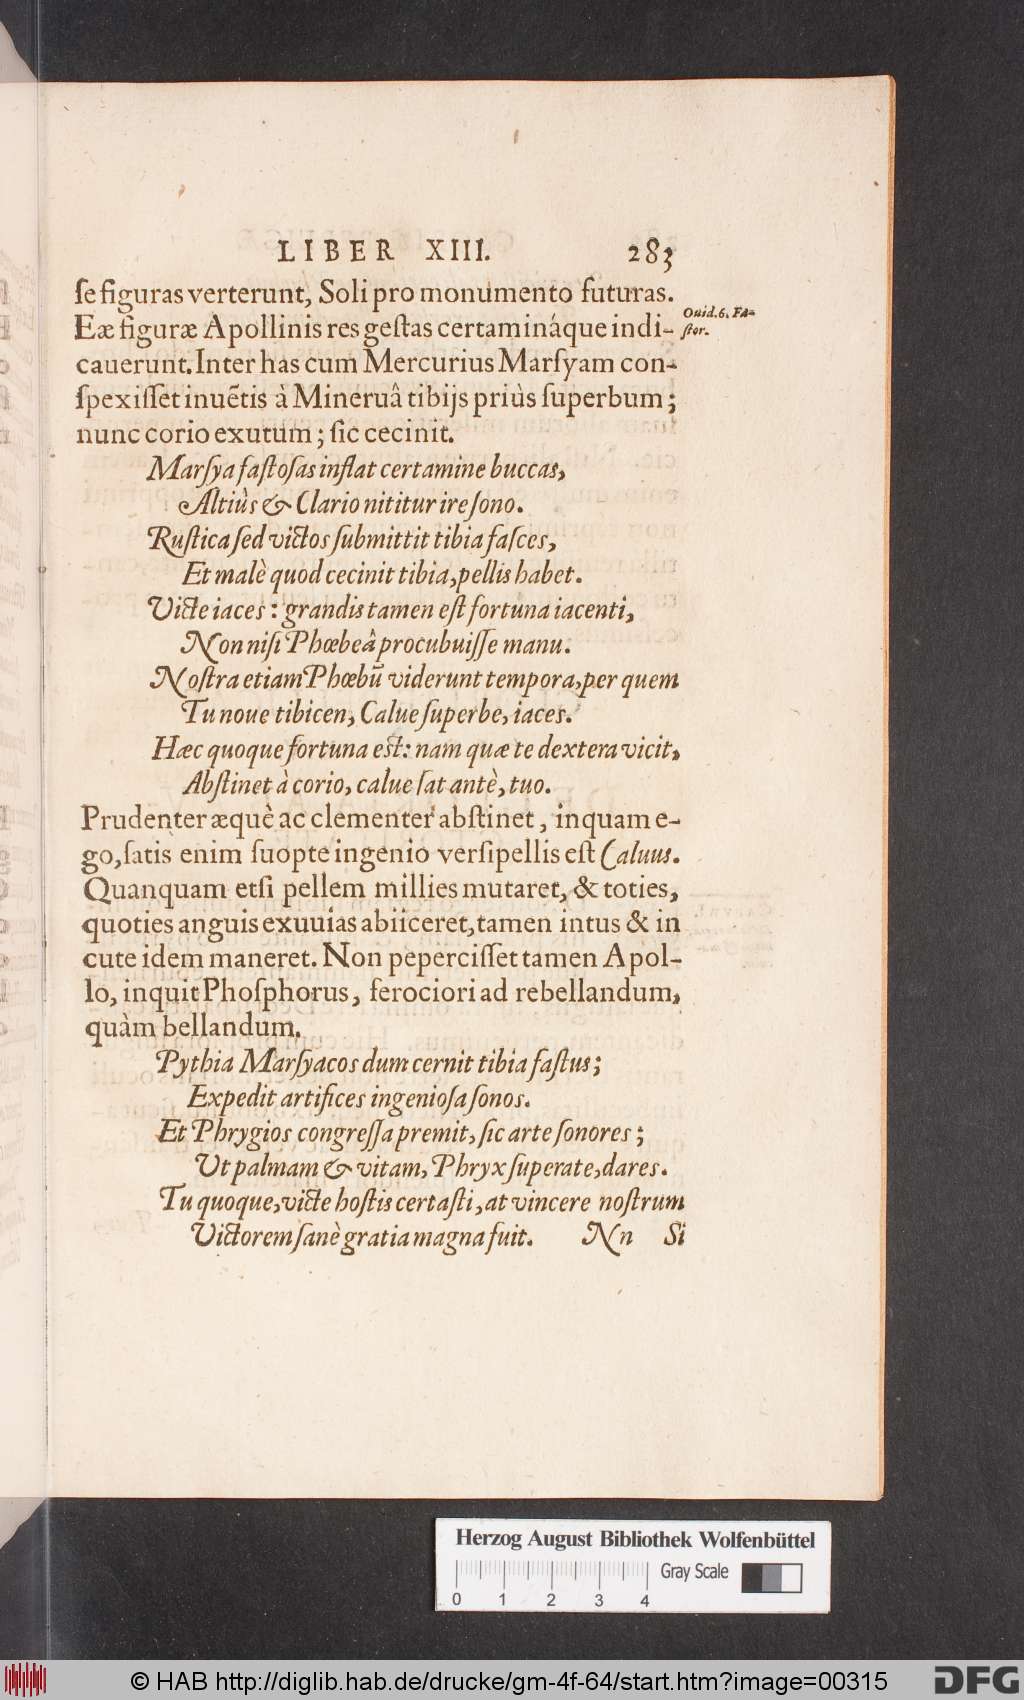 LIBER XIII. 283
ſe figuras verterunt, Soli pro monumento futuras.
Eæ figuræ Apollinis res geſtas certamináque indi-
Ouid.6. Fa-
ſtor.
cauerunt. Inter has cum Mercurius Marſyam con-
ſpexiſſet inuẽtis à Mineruâ tibijs priùs ſuperbum;
nunc corio exutum; ſic cecinit.
Marſya faſtoſas inflat certamine buccas,
Altiùs & Clario nititur ire ſono.
Ruſtica ſed victos ſubmittit tibia faſces,
Et malè quod cecinit tibia, pellis habet.
Victe iaces: grandis tamen eſt fortuna iacenti,
Non niſi Phœbeâ procubuiſſe manu.
Noſtra etiam Phœbũ viderunt tempora, per quem
Tu noue tibicen, Calue ſuperbe, iaces.
Hæc quoque fortuna est: nam quæ te dextera vicit,
Abſtinet à corio, calue ſat antè, tuo.
Prudenter æquè ac clementer abſtinet, inquam e-
go, ſatis enim ſuopte ingenio verſipellis eſt Caluus.
Quanquam etſi pellem millies mutaret, & toties,
quoties anguis exuuias abiiceret, tamen intus & in
cute idem maneret. Non peperciſſet tamen Apol-
lo, inquit Phoſphorus, ferociori ad rebellandum,
quàm bellandum.
Pythia Marſyacos dum cernit tibia faſtus;
Expedit artifices ingenioſa ſonos.
Et Phrygios congreſſa premit, ſic arte ſonores;
Ut palmam & vitam, Phryx ſuperate, dares.
Tu quoque, victe hoſtis certaſti, at vincere noſtrum
Victorem ſanè gratia magna fuit. Nn Si
Herzog August Bibliothek Wolfenbüttel
Gray Scale
0 1 2 3 4
© HAB http://diglib.hab.de/drucke/gm-4f-64/start.htm?image=00315
DFG